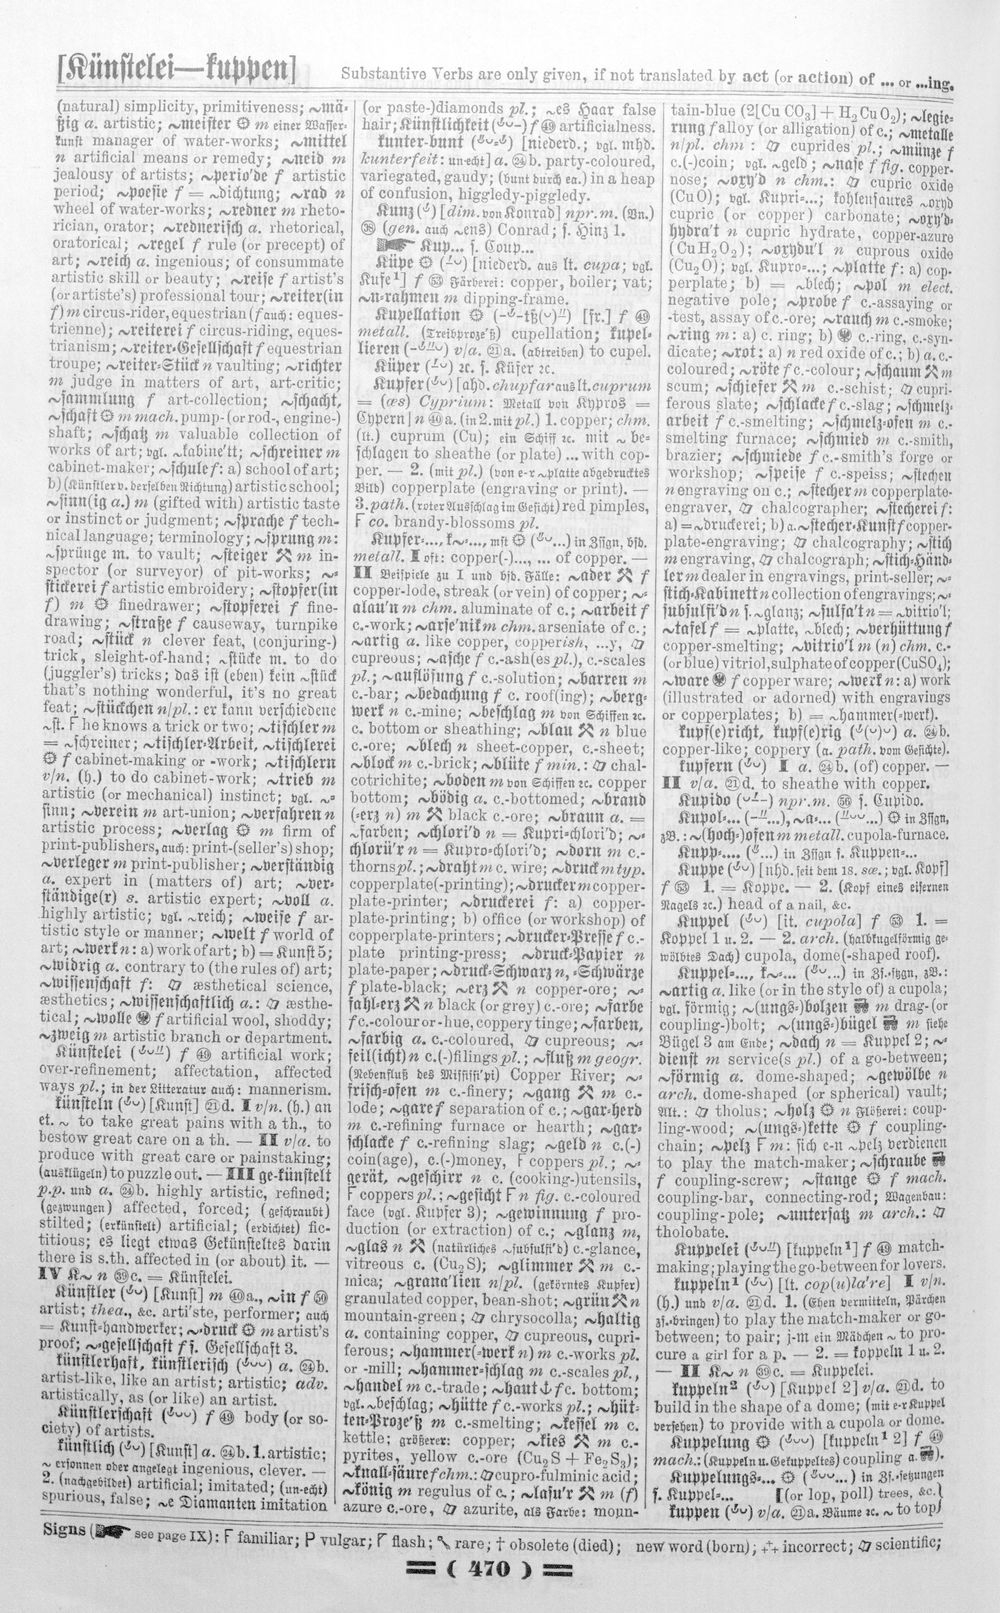 [Künstelei—kuppen]
Substantive Verbs are only given, if not translated by act (or action) of ... or ...ing.
(natural) simplicity, primitiveness; ~mä=
ßig a. artistic; ~meister ⚙ m einer Wasser=
kunst manager of water-works; ~mittel
n artistic means or remedy; ~neid m
jealousy of artists; ~perio'de f artistic
period; ~poesie f = ~dichtung; ~rad n
wheel of water-works; ~redner m rheto-
rician, orator; ~rednerisch a. rhetorical,
oratorical; ~regel f rule (or precept) of
art; ~reich a. ingenious; of consummate
artistic skill or beauty; ~reise f artist's
(or artiste's) professional tour; ~reiter(in
f) m circus-rider, equestrian (f auch: eques-
trienne); ~reiterei f circus-riding, eques-
trianism; ~reiter=Gesellschaft f equestrian
troupe; ~reiter=Stück n vaulting; ~richter
m judge in matters of art, art-critic;
~sammlung f art-collection; ~schacht,
~schaft ⚙ m mach. pump- (or rod-, engine-)
shaft; ~schatz m valuable collection of
works of art; vgl. ~kabine'tt; ~schreiner m
cabinet-maker; ~schule f: a) school of art;
b) (Künstler v. derselben Richtung) artistic school;
~sinn(ig a.) m (gifted with) artistic taste
or instinct or judgment; ~sprache f tech-
nical language; terminology; ~sprung m:
~sprünge m. to vault; ~steiger ⚒ m in-
spector (or surveyor) of pit-works; ~=
stickerei f artistic embroidery; ~stopfer(in
f) m ⚙ finedrawer; ~stopferei f fine-
drawing; ~straße f causeway, turnpike
road; ~stück n clever feat, (conjuring-)
trick, sleight-of-hand; ~stücke m. to do
(juggler's) tricks; das ist (eben) kein ~stück
that's nothing wonderful, it's no great
feat; ~stückchen n/pl.: er kann verschiedene
~st. F he knows a trick or two; ~tischler m
= ~schreiner; ~tischler=Arbeit, ~tischlerei
⚙ f cabinet-making or -work; ~tischlern
v/n. (h.) to do cabinet-work; ~trieb m
artistic (or mechanical) instinct; vgl. ~=
sinn; ~verein m art-union; ~verfahren n
artistic process; ~verlag ⚙ m firm of
print-publishers, auch: print-(seller's) shop;
~verleger m print-publisher; ~verständig
a. expert in (matters of) art; ~ver=
ständige(r) s. artistic expert; ~voll a.
highly artistic; vgl. ~reich; ~weise f ar-
tistic style or manner; ~welt f world of
art; ~werk n: a) work of art; b) = Kunst 5;
~widrig a. contrary to (the rules of) art;
~wissenschaft f: æsthetical science,
æsthetics; ~wissenschaftlich a.: æsthe-
tical; ~wolle f artificial wool, shoddy;
~zweig m artistic branch or department.
Künstelei f ㊾ artificial work;
over-refinement; affectation, affected
ways pl.; in der Litteratur auch: mannerism.
künsteln [Kunst] ㉑d. I v/n. (h.) an
et. ~ to take great pains with a th., to
bestow great care on a th. — II v/a. to
produce with great care or painstaking;
(ausklügeln) to puzzle out. — III ge-künstelt
p.p. und a. ㉔b. highly artistic, refined;
(gezwungen) affected, forced; (geschraubt)
stilted; (erkünstelt) artificial; (erdichtet) fic-
titious; es liegt etwas Gekünsteltes darin
there is s.th. affected in (or about) it. —
IV K~ n ㊴c. = Künstelei.
Künstler [Kunst] m ㊵a., ~in f ㊿
artist; thea., &c. arti'ste, performer; auch
= Kunst=handwerker; ~=druck ⚙ m artist's
proof; ~=gesellschaft f s. Gesellschaft 3.
künstlerhaft, künstlerisch a. ㉔b.
artist-like, like an artist; artistic; adv.
artistically, as (or like) an artist.
Künstlerschaft f ㊾ body (or so-
ciety) of artists.
künstlich [Kunst] a. ㉔b. 1. artistic;
~ ersonnen oder angelegt ingenious, clever. —
2. (nachgebildet) artificial; imitated; (un-echt)
spurious, false; ~e Diamanten imitation
(or paste-)diamonds pl.; ~es Haar false
hair; Künstlichkeit f ㊾ artificialness.
kunter-bunt [niederd.; vgl. mhd.
kunterfeit: un-echt] a. ㉔b. party-coloured,
variegated, gaudy; (bunt durch ea.) in a heap
of confusion, higgledy-piggledy.
Kunz [dim. von Konrad] npr. m. (Vn.)
(gen. auch ~ens) Conrad; s. Hinz 1.
☛ Kup... s. Coup...
Küpe ⚙ [niederd. aus lt. cupa; vgl.
Kufe¹] f Färberei: copper, boiler; vat;
~n-rahmen m dipping-frame.
Kupellation ⚙ [fr.] f ㊾
metall. (Treibproze'ß) cupellation; kupel=
lieren v/a. ㉑a. (abtreiben) to cupel.
Küper ꝛc. s. Küfer ꝛc.
Kupfer [ahd. chupfar aus lt. cuprum
= (æs) Cyprium: Metall von Kypros =
Cypern] n ㊵a. (in 2. mit pl.) 1. copper; chm.
(lt.) cuprum (Cu); ein Schiff ꝛc. mit ~ be=
schlagen to sheathe (or plate) ... with cop-
per. — 2. (mit pl.) (von e-r ~platte abgedrucktes
Bild) copperplate (engraving or print). —
3. path. (roter Ausschlag im Gesicht) red pimples,
F co. brandy-blossoms pl.
Kupfer=..., k~=..., mst ⚙ in Zssgn, bsd.
metall. I oft: copper(-)..., ... of copper. —
II Beispiele zu I und bsd. Fälle: ~ader ⚒ f
copper-lode, streak (or vein) of copper; ~=
alau'n m chm. aluminate of c.; ~arbeit f
c.-work; ~arse'nik m chm. arseniate of c.;
~artig a. like copper, copperish, ...y,
cupreous; ~asche f c.-ash(es pl.), c.-scales
pl.; ~auflösung f c.-solution; ~barren m
c.-bar; ~bedachung f c. roof(ing); ~berg=
werk n c.-mine; ~beschlag m von Schiffen ꝛc.
c. bottom or sheathing; ~blau ⚒ n blue
c.-ore; ~blech n sheet-copper, c.-sheet;
~block m c.-brick; ~blüte f min.: chal-
cotrichite; ~boden m von Schiffen ꝛc. copper
bottom; ~bödig a. c.-bottomed; ~brand
(-erz n) m ⚒ black c.-ore; ~braun a. =
~farben; ~chlori'd n = Kupri=chlori'd; ~=
chlorü'r n = Kupro=chlori'd; ~dorn m c.-
thorns pl.; ~draht m c. wire; ~druck m typ.
copperplate(-printing); ~drucker m copper-
plate-printer; ~druckerei f: a) copper-
plate-printing; b) office (or workshop) of
copperplate-printers; ~drucker=Presse f c.-
plate printing-press; ~druck=Papier n
plate-paper; ~druck=Schwarz n, =Schwärze
f plate-black; ~erz ⚒ n copper-ore; ~=
fahl-erz ⚒ n black (or grey) c.-ore; ~farbe
f c.-colour or -hue, coppery tinge; ~farben,
~farbig a. c.-coloured, cupreous; ~=
feil(icht) n c.(-)filings pl.; ~fluß m geogr.
(Nebenfluß des Mississi'pi) Copper River; ~=
frisch-ofen m c.-finery; ~gang ⚒ m c.-
lode; ~gare f separation of c.; ~gar=herd
m c.-refining furnace or hearth; ~gar=
schlacke f c.-refining slag; ~geld n c.(-)
coin(age), c.(-)money, F coppers pl.; ~=
gerät, ~geschirr n c. (cooking-)utensils,
F coppers pl.; ~gesicht F n fig. c.-coloured
face (vgl. Kupfer 3); ~gewinnung f pro-
duction (or extraction) of c.; ~glanz m,
~glas n ⚒ (natürliches ~subsulfi'd) c.-glance,
vitreous c. (Cu₂S); ~glimmer ⚒ m c.-
mica; ~grana'lien n/pl. (gekörntes Kupfer)
granulated copper, bean-shot; ~grün ⚒ n
mountain-green; chrysocolla; ~haltig
a. containing copper, cupreous, cupri-
ferous; ~hammer(=werk n) m c.-works pl.
or -mill; ~hammer=schlag m c.-scales pl.,
~handel m c.-trade; ~haut ⚓ f c. bottom;
vgl. ~beschlag; ~hütte f c.-works pl.; ~hüt=
ten=Proze'ß m c.-smelting; ~kessel m c.
kettle; größerer: copper; ~kies ⚒ m c.-
pyrites, yellow c.-ore (Cu₂S + Fe₂S₃);
~knall-säure f chm.: cupro-fulminic acid;
~könig m regulus of c.; ~lasu'r ⚒ m (f)
azure c.-ore, azurite, als Farbe: moun-
tain-blue (2[Cu CO₃] + H₂CuO₂); ~legie=
rung f alloy (or alligation) of c.; ~metalle
n/pl. chm: cuprides pl.; ~münze f
c.(-)coin; vgl. ~geld; ~nase f fig. copper-
nose; ~oxy'd n chm.: cupric oxide
(CuO); vgl. Kupri=...; kohlensaures ~oxyd
cupric (or copper) carbonate; ~oxy'd=
hydra't n cupric hydrate, copper-azure
(CuH₂O₂); ~oxydu'l n cuprous oxide
(Cu₂O); vgl. Kupro=...; ~platte f: a) cop-
perplate; b) = ~blech; ~pol m elect.
negative pole; ~probe f c.-assaying or
-test, assay of c.-ore; ~rauch m c.-smoke;
~ring m: a) c. ring; b) c.-ring, c.-syn-
dicate; ~rot: a) n red oxide of c.; b) a. c.-
coloured; ~röte f c.-colour; ~schaum ⚒ m
scum; ~schiefer ⚒ m c.-schist; cupri-
ferous slate; ~schlacke f c.-slag; ~schmelz=
arbeit f c.-smelting; ~schmelz-ofen m c.-
smelting furnace; ~schmied m c.-smith,
brazier; ~schmiede f c.-smith's forge or
workshop; ~speise f c.-speiss; ~stechen
n engraving on c.; ~stecher m copperplate-
engraver, chalcographer; ~stecherei f:
a) = ~druckerei; b) a. ~stecher=Kunst f copper-
plate-engraving; chalcography; ~stich
m engraving, chalcograph; ~stich=Händ=
ler m dealer in engravings, print-seller; ~=
stich=Kabinett n collection of engravings; ~=
subsulfi'd n s. ~glanz; ~sulfa't n = ~vitrio'l;
~tafel f = ~platte, ~blech; ~verhüttung f
copper-smelting; ~vitrio'l m (n) chm. c.-
(or blue) vitriol, sulphate of copper (CuSO₄);
~ware f copper ware; ~werk n: a) work
(illustrated or adorned) with engravings
or copperplates; b) = ~hammer(=werk).
kupf(e)richt, kupf(e)rig a. ㉔b.
copper-like; coppery (a. path. vom Gesichte).
kupfern I a. ㉔b. (of) copper. —
II v/a. ㉑d. to sheathe with copper.
Kupido npr. m. s. Cupido.
Kupol=..., ~a=... ⚙ in Zssgn,
zB.: ~(hoch=)ofen m metall. cupola-furnace.
Kupp=.... in Zssgn s. Kuppen=...
Kuppe [nhd. seit dem 18. sæ.; vgl. Kopf]
f 1. = Koppe. — 2. (Kopf eines eisernen
Nagels ꝛc.) head of a nail, &c.
Kuppel [it. cupola] f 1. =
Koppel 1 u. 2. — 2. arch. (halbkugelförmig ge=
wölbtes Dach) cupola, dome(-shaped roof).
Kuppel=..., k~=... in Zs.=sgn, zB.:
~artig a. like (or in the style of) a cupola;
vgl. förmig; ~(ungs=)bolzen m drag- (or
coupling-)bolt; ~(ungs=)bügel m siehe
Bügel 3 am Ende; ~dach n = Kuppel 2; ~=
dienst m service(s pl.) of a go-between;
~förmig a. dome-shaped; ~gewölbe n
arch. dome-shaped (or spherical) vault;
Alt.: tholus; ~holz ⚙ n Flößerei: coup-
ling-wood; ~(ungs=)kette ⚙ f coupling-
chain; ~pelz F m: sich e-n ~pelz verdienen
to play the match-maker; ~schraube
f coupling-screw; ~stange ⚙ f mach.
coupling-bar, connecting-rod; Wagenbau:
coupling-pole; ~untersatz m arch.:
tholobate.
Kuppelei [kuppeln¹] f ㊾ match-
making; playing the go-between for lovers.
kuppeln¹ [lt. cop(u)la're] I v/n.
(h.) und v/a. ㉑d. 1. (Ehen vermitteln, Pärchen
zs.=bringen) to play the match-maker or go-
between; to pair; j-m ein Mädchen ~ to pro-
cure a girl for a p. — 2. = koppeln 1 u. 2.
— II K~ n ㊴c. = Kuppelei.
kuppeln² [Kuppel 2] v/a. ㉑d. to
build in the shape of a dome; (mit e-r Kuppel
versehen) to provide with a cupola or dome.
Kuppelung ⚙ [kuppeln¹ 2] f ㊾
mach.: (Kuppeln u. Gekuppeltes) coupling a.
Kuppelungs=... ⚙ in Zs.=setzungen
s. Kuppel=... [(or lop, poll) trees, &c.}
kuppen v/a. ㉑a. Bäume ꝛc. ~ to top}
Signs (☛ see page IX): F familiar; P vulgar; Γ flash; rare; † obsolete (died); new word (born); incorrect; scientific;
= ( 470 ) =